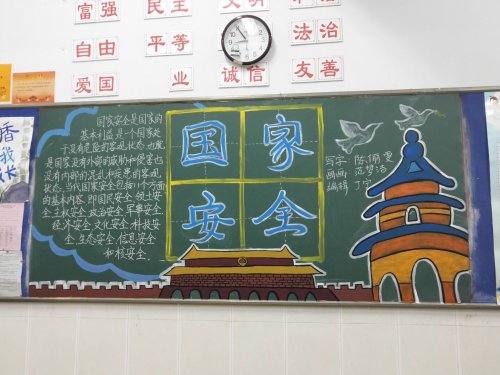 富强 民主 文明
自由 平等 法治
爱国 业 诚信 友善
国家安全是国家的
基本利益,是一个国家处
于没有危险的客观状态,也就
是国家没有外部的威胁和侵害也
没有内部的混乱和疾患的客观
状态。当代国家安全包括11个方面
的基本内容,即国民安全、领土安
全、主权安全、政治安全、军事安全、
经济安全、文化安全、科技安
全、生态安全、信息安全
和核安全。
国家
安全
写字 陈
画画 范梦洁
编辑 丁宁